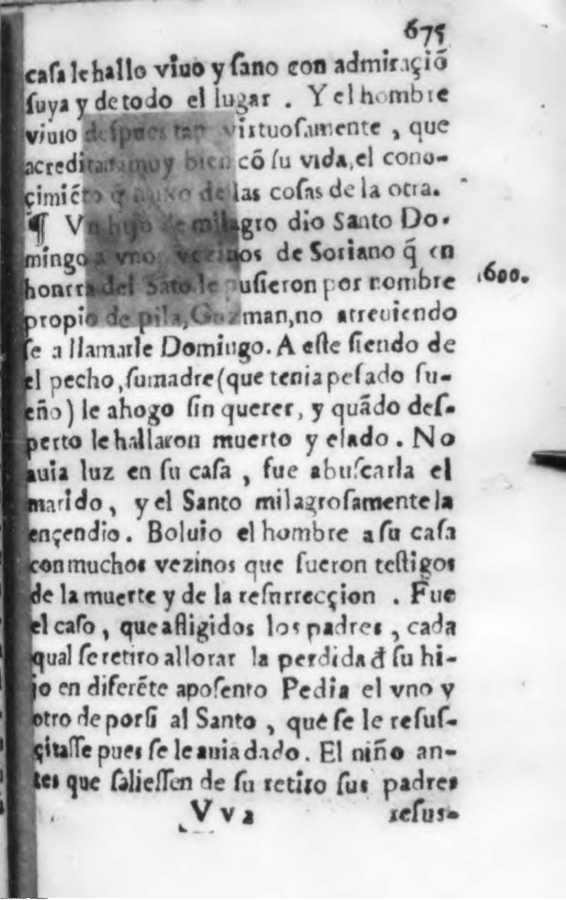 675
casa le hallo viuo y sano con admiraçiõ
suya y de todo el lugar . Y el hombre
viuio despues tan virtuosamente , que
acredita muy bien cõ su vida, el cono-
çimiẽto q̃ truxo de las cosas de la otra.
¶ Vn hijo de milagro dio Santo Do-
mingo a vnos vezinos de Soriano q̃ en
honrra del Sãto le pusieron por nombre
1600.
propio de pila, Guzman, no atreuiendo
se a llamarle Domingo. A este siendo de
el pecho, su madre (que tenia pesado su-
eño) le ahogo sin querer, y quãdo des-
perto le hallaron muerto y elado . No
auia luz en su casa , fue abuscarla el
marido , y el Santo milagrosamente la
ençendio . Boluio el hombre a su casa
con muchos vezinos que fueron testigos
de la muerte y de la resurrecçion . Fue
el caso , que afligidos los padres , cada
qual se retiro allorar la perdida đ su hi-
jo en diferẽte aposento Pedia el vno y
otro de porsi al Santo , que se le resus-
çitasse pues se le auia dado . El niño an-
tes que saliessen de su retiro sus padres
V v 2 resus-